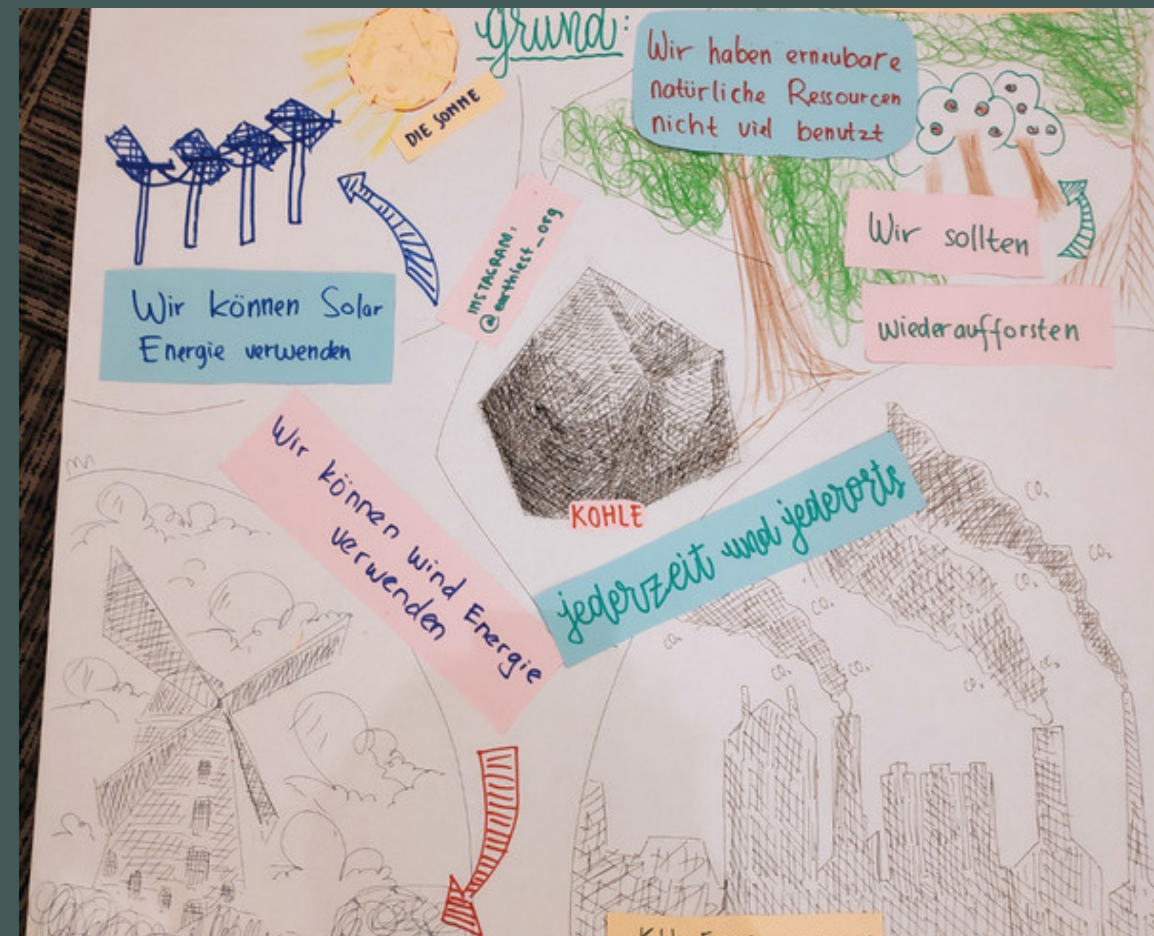 grund:
Wir haben erneubare
natürliche Ressourcen
nicht viel benutzt
DIE SONNE
Wir sollten
wiederaufforsten
INSTAGRAM:
@earthiest_org
Wir können Solar
Energie verwenden
KOHLE
Wir können wind Energie
verwenden
jederzeit und jederorts
CO₂
CO₂
CO₂
CO₂
CO₂
CO₂
CO₂
CO₂
CO₂